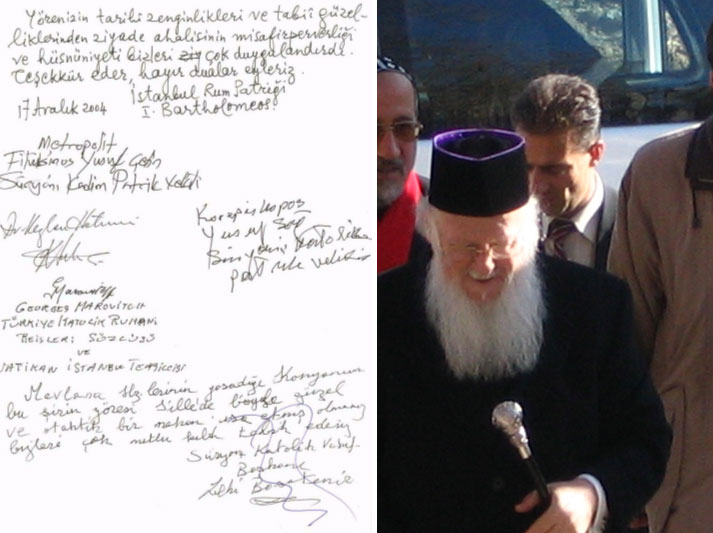 Yörenizin tarihî zenginlikleri ve tabiî güzel-
liklerinden ziyade ahalisinin misafirperverliği
ve hüsnüniyeti bizleri çok duygulandırdı.
Teşekkür eder, hayır dualar eyleriz.
İstanbul Rum Patriği
17 Aralık 2004 I. Bartholomeos
Metropolit
Filüksinos Yusuf Çetin
Süryâni Kadim Patrik Vekili
Korepiskopos
Yusuf
GEORGES MAROVITCH
TÜRKİYE KATOLİK RUHANİ
REİSLERİ SÖZCÜSÜ
VE
VATİKAN İSTANBUL TEMSİLCİSİ
Mevlana Hz lerinin yaşadığı Konyanın
bu şirin yöresi Sille'de böyle güzel
ve otantik bir mekan
bizleri çok mutlu kıldı
Süryani Katolik Vakıf
Başkanı
Zeki